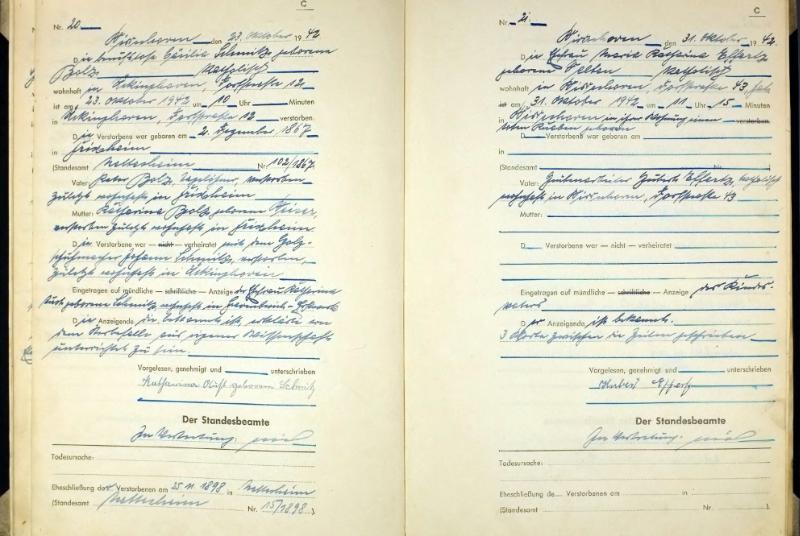 C
Nr. 20
Wissenhoven, den 23. Oktober 1942
Die berufslose Cäcilia Schmitz geborene
Bolz, katholisch
wohnhaft in Uckinghoven, Dorfstraße 12
ist am 23. Oktober 1942 um 10 Uhr Minuten
in Uckinghoven, Dorfstraße 12 verstorben.
Die Verstorbene war geboren am 2. Dezember 1867
in Frixheim
(Standesamt Nettesheim Nr. 102/1867.
Vater: Peter Bolz, Tagelöhner, verstorben,
zuletzt wohnhaft in Frixheim
Mutter: Katharina Bolz geborene
verstorben zuletzt wohnhaft in Frixheim
Die Verstorbene war — nicht — verheiratet mit dem Holz-
schuhmacher Johann Schmitz, verstorben,
zuletzt wohnhaft in Uckinghoven
Eingetragen auf mündliche — schriftliche — Anzeige der Ehefrau Katharina
geborene Schmitz wohnhaft in
Die Anzeigende
dem Sterbefalle aus eigener Wissenschaft
unterrichtet zu sein.
Vorgelesen, genehmigt und unterschrieben
Katharina geborene Schmitz
Der Standesbeamte
In Vertretung.
Todesursache:
Eheschließung der Verstorbenen am 25 11 1898 in Nettesheim
(Standesamt Nettesheim Nr. 15/1898.)
C
Nr. 21
den 31. Oktober 1942.
Die Ehefrau Maria Katharina Effertz
geborene Velten katholisch
wohnhaft in Dorfstraße 43, hat
ist am 31. Oktober 1942 um 11 Uhr 15 Minuten
in in ihrer Wohnung einen verstorben.
Knaben geboren
D Verstorbene war geboren am
in
(Standesamt Nr.
Vater: Hubert Effertz, katholisch
wohnhaft in Dorfstraße 43
Mutter:
D Verstorbene war — nicht — verheiratet
Eingetragen auf mündliche — schriftliche — Anzeige des Kindes-
vaters
Der Anzeigende ist bekannt.
3 Worte zwischen die Zeilen geschrieben
Vorgelesen, genehmigt und unterschrieben
Hubert Effertz
Der Standesbeamte
In Vertretung.
Todesursache:
Eheschließung de Verstorbenen am in
(Standesamt Nr. )